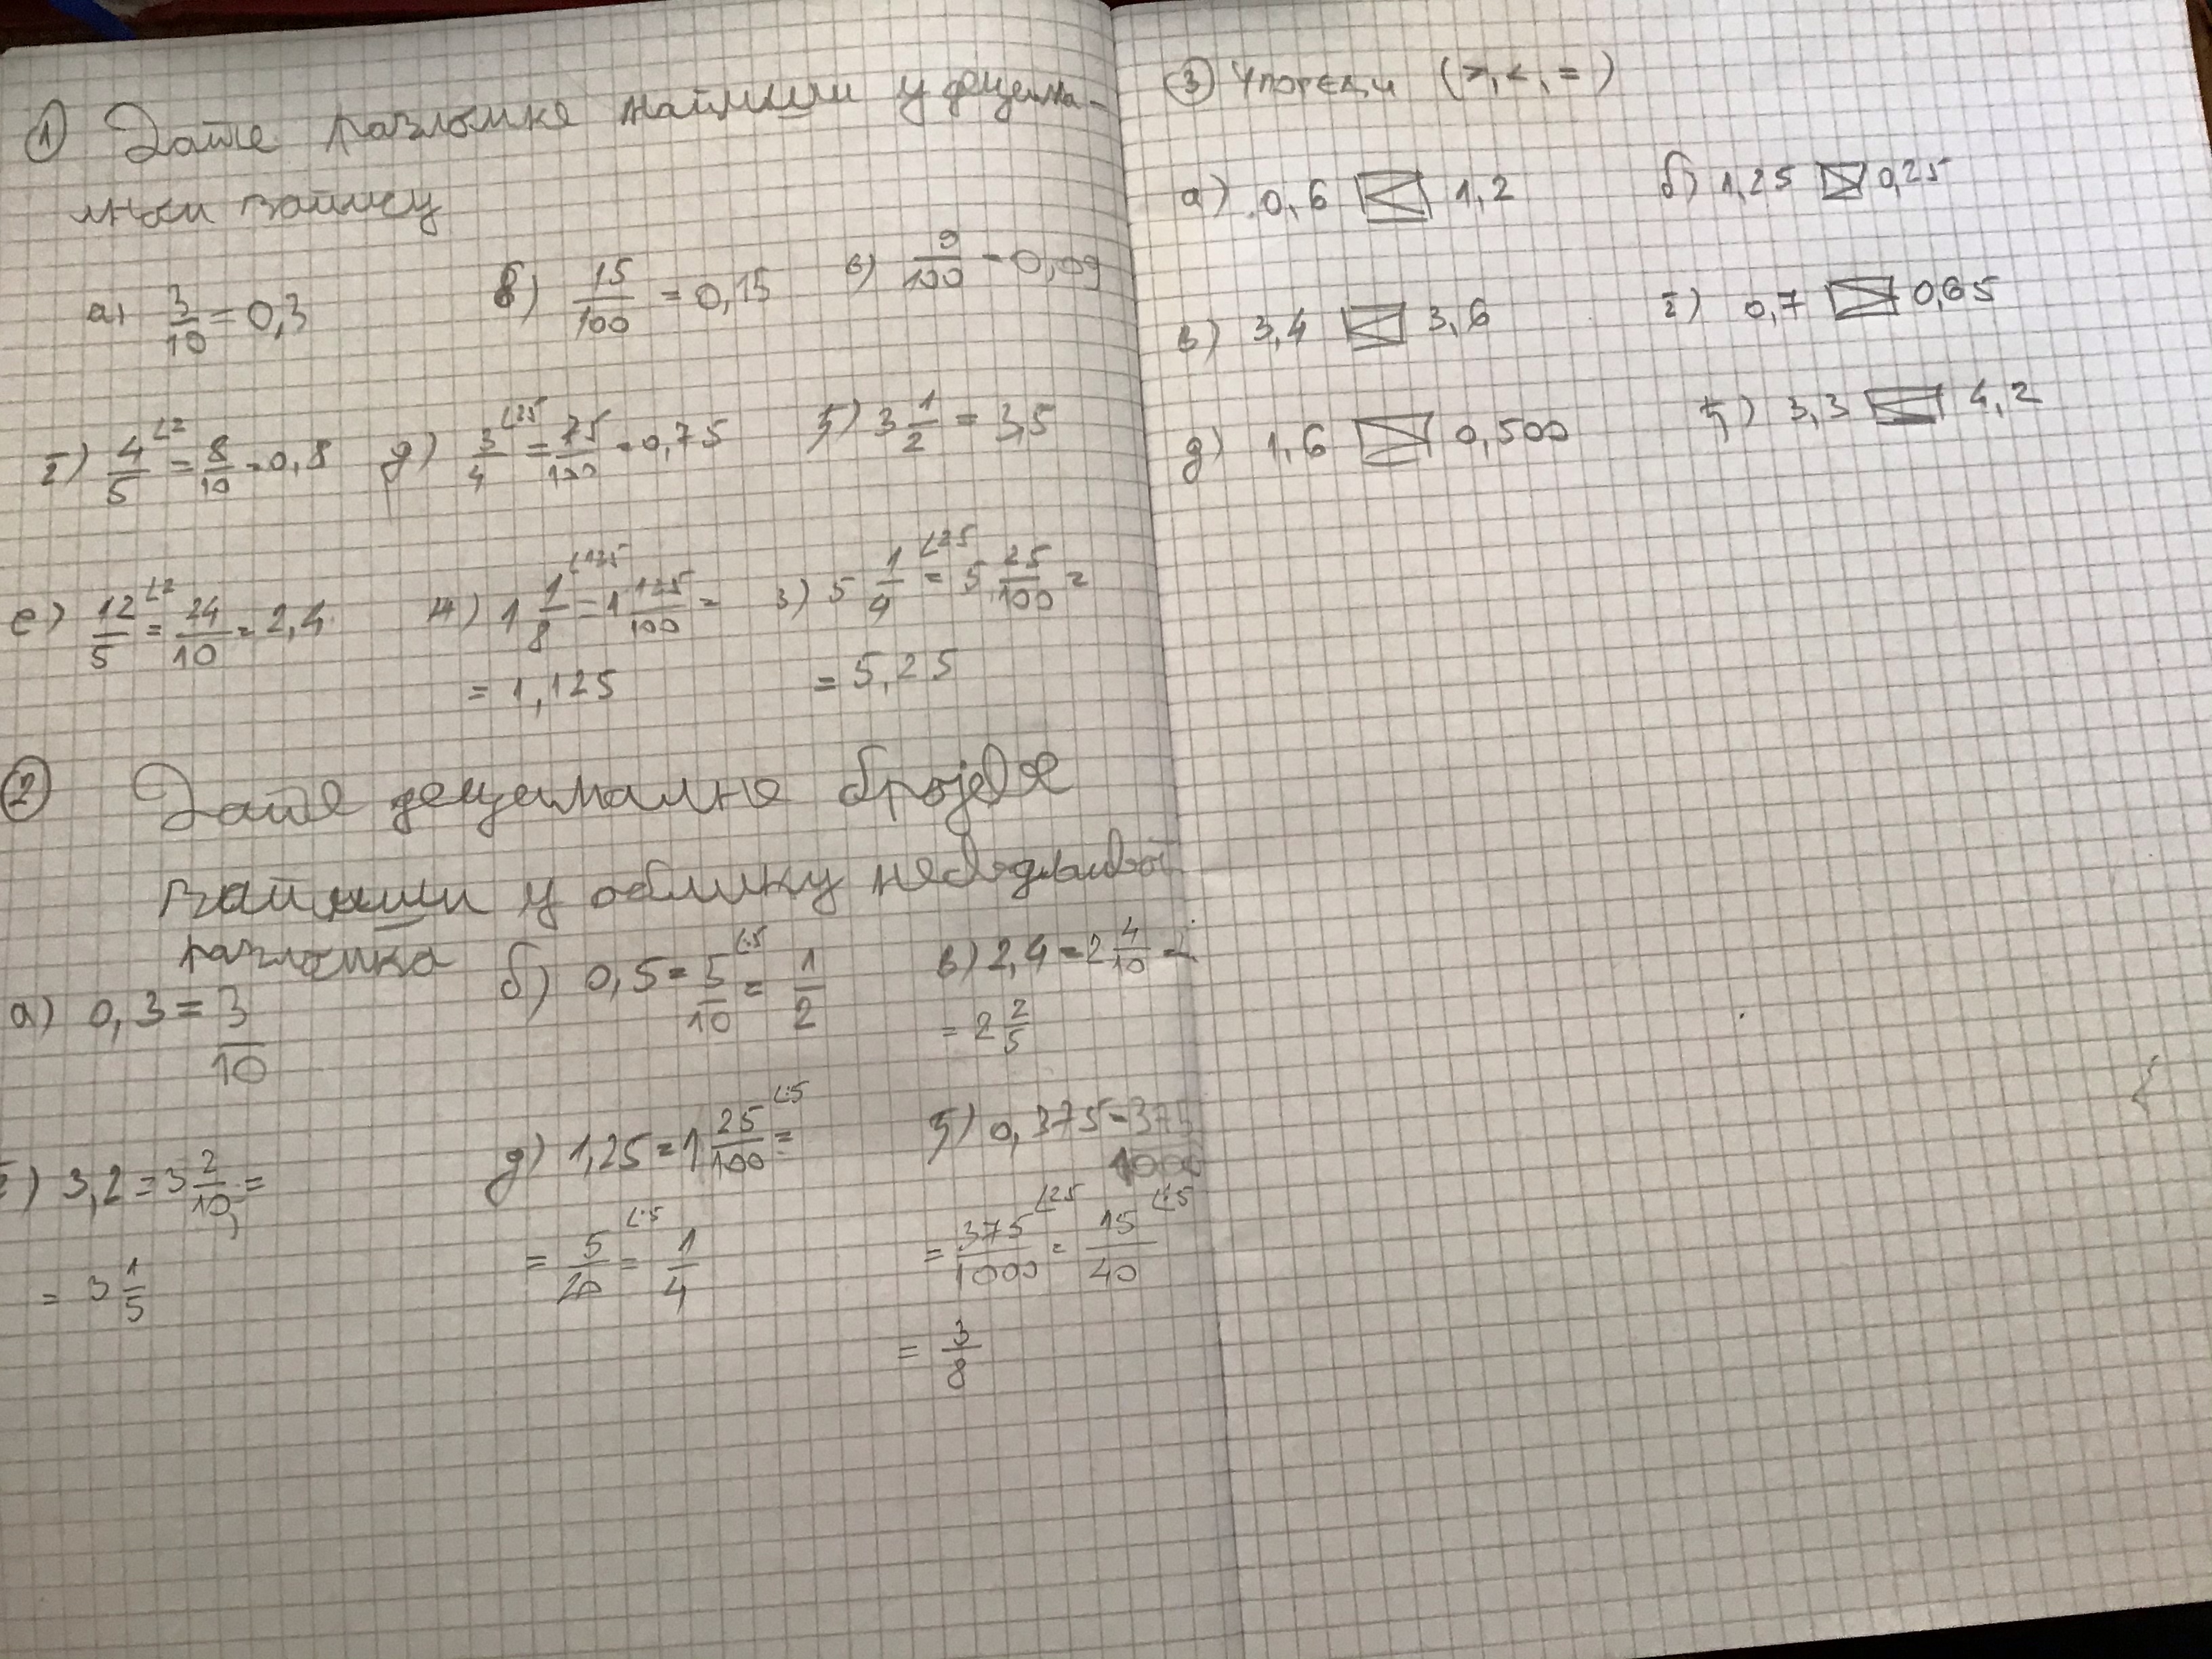 ① Дате разломке напиши у децима-
лном запису
а) 3/10 = 0,3 б) 15/100 = 0,15 в) 9/100 = 0,09
г) 4/5 ∠2 = 8/10 = 0,8 д) 3/4 ∠25 = 75/100 = 0,75 ђ) 3 1/2 = 3,5
е) 12/5 ∠2 = 24/10 = 2,4 ж) 1 1/8 ∠125 = 1 125/100 = з) 5 1/4 ∠25 = 5 25/100 =
= 1,125 = 5,25
② Дате децималне бројеве
запиши у облику несводљивог
разломка
а) 0,3 = 3/10 б) 0,5 = 5/10 ∠:5 = 1/2 в) 2,4 = 2 4/10 =
= 2 2/5
г) 3,2 = 3 2/10 = д) 1,25 = 1 25/100 ∠:5 = ђ) 0,375 = 375/1000
= 3 1/5 = 5/20 ∠:5 = 1/4 = 375/1000 ∠25 = 15/40 ∠:5
= 3/8
③ Упореди (>, <, =)
а) 0,6 < 1,2 б) 1,25 > 0,25
в) 3,4 < 3,6 г) 0,7 > 0,65
д) 1,6 > 0,500 ђ) 3,3 < 4,2